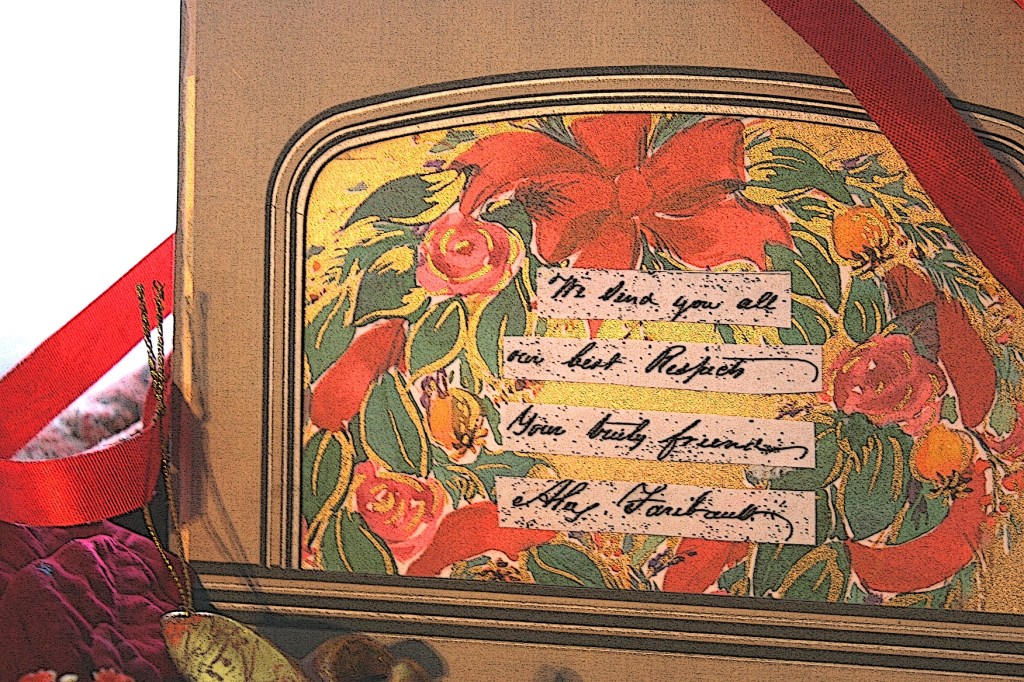 We send you all
our best Respects
Your truly friend
Alex. Faribault